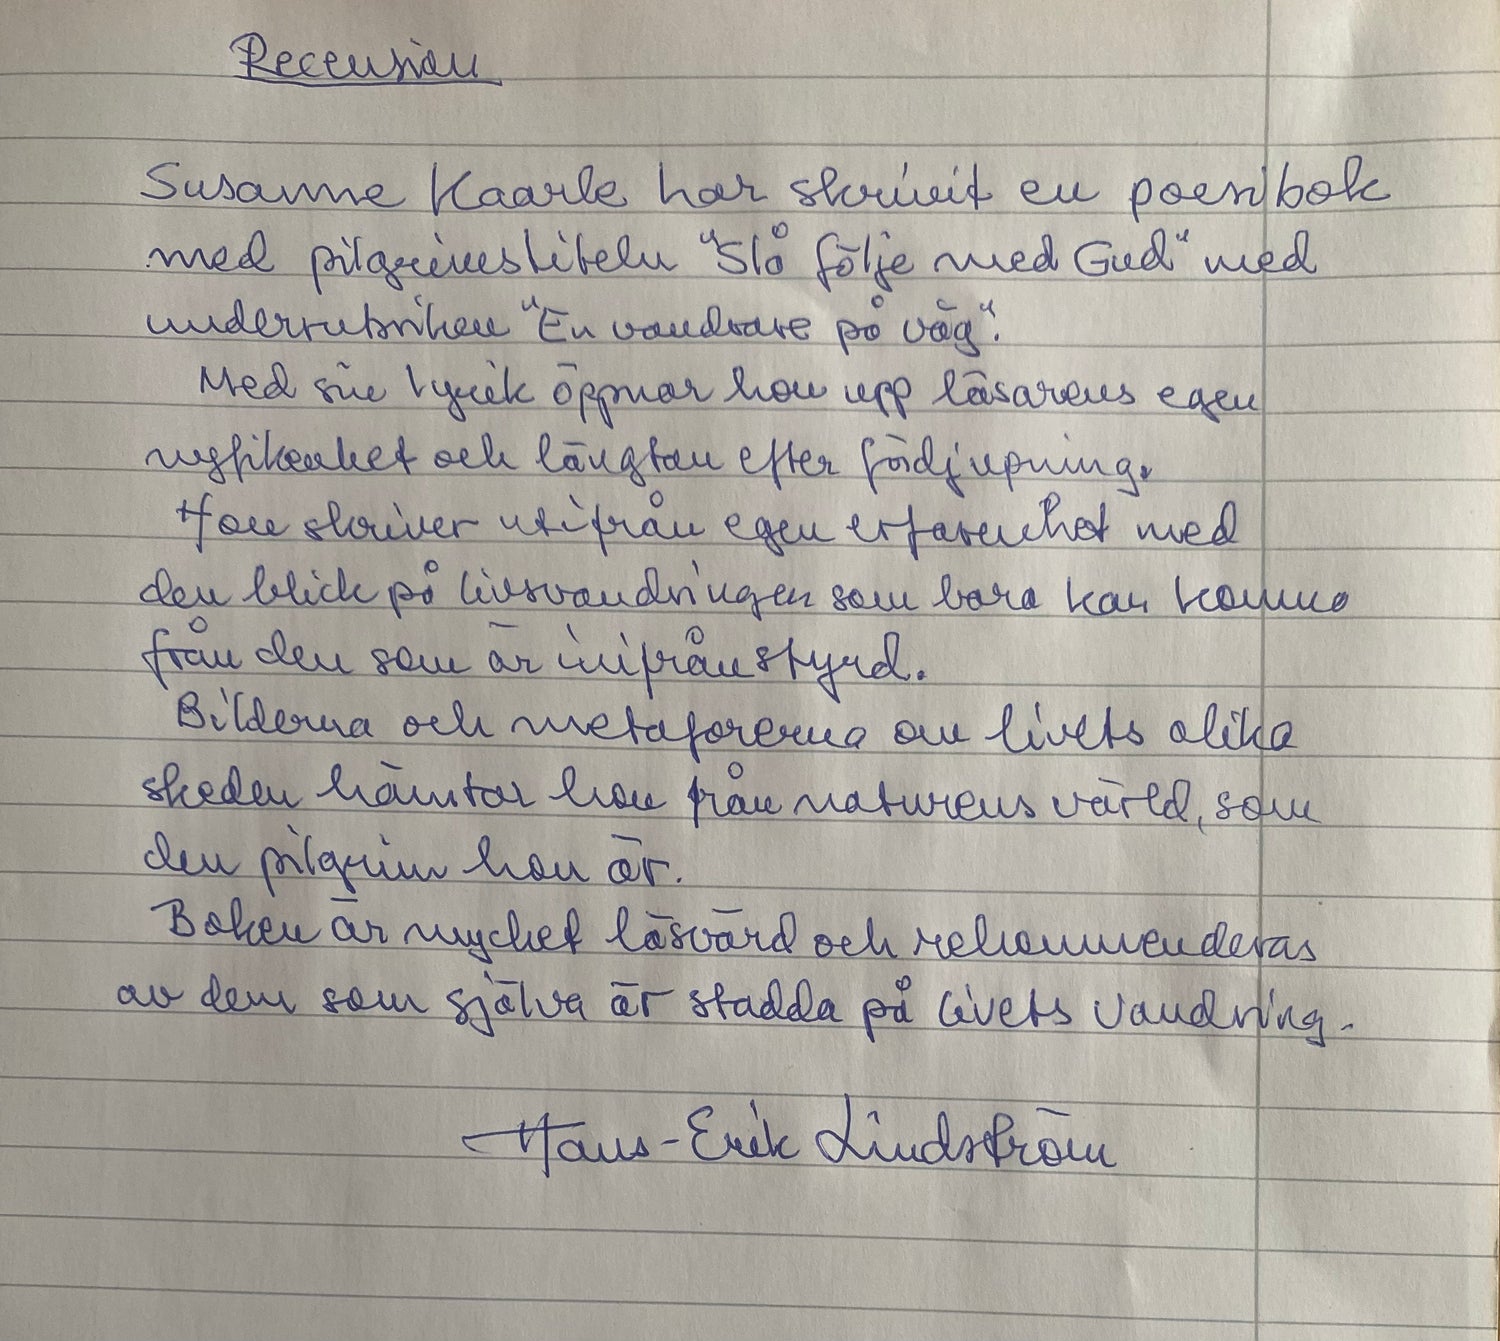 Recension
Susanne Kaarle har skrivit en poesibok
med pilgrimstiteln "Slå följe med Gud" med
underrubriken "En vandrare på väg".
Med sin lyrik öppnar hon upp läsarens egen
nyfikenhet och längtan efter fördjupning.
Hon skriver utifrån egen erfarenhet med
den blick på livsvandringen som bara kan komma
från den som är inifrånstyrd.
Bilderna och metaforerna om livets olika
skeden hämtar hon från naturens värld, som
den pilgrim hon är.
Boken är mycket läsvärd och rekommenderas
av dem som själva är stadda på livets vandring.
Hans-Erik Lindström